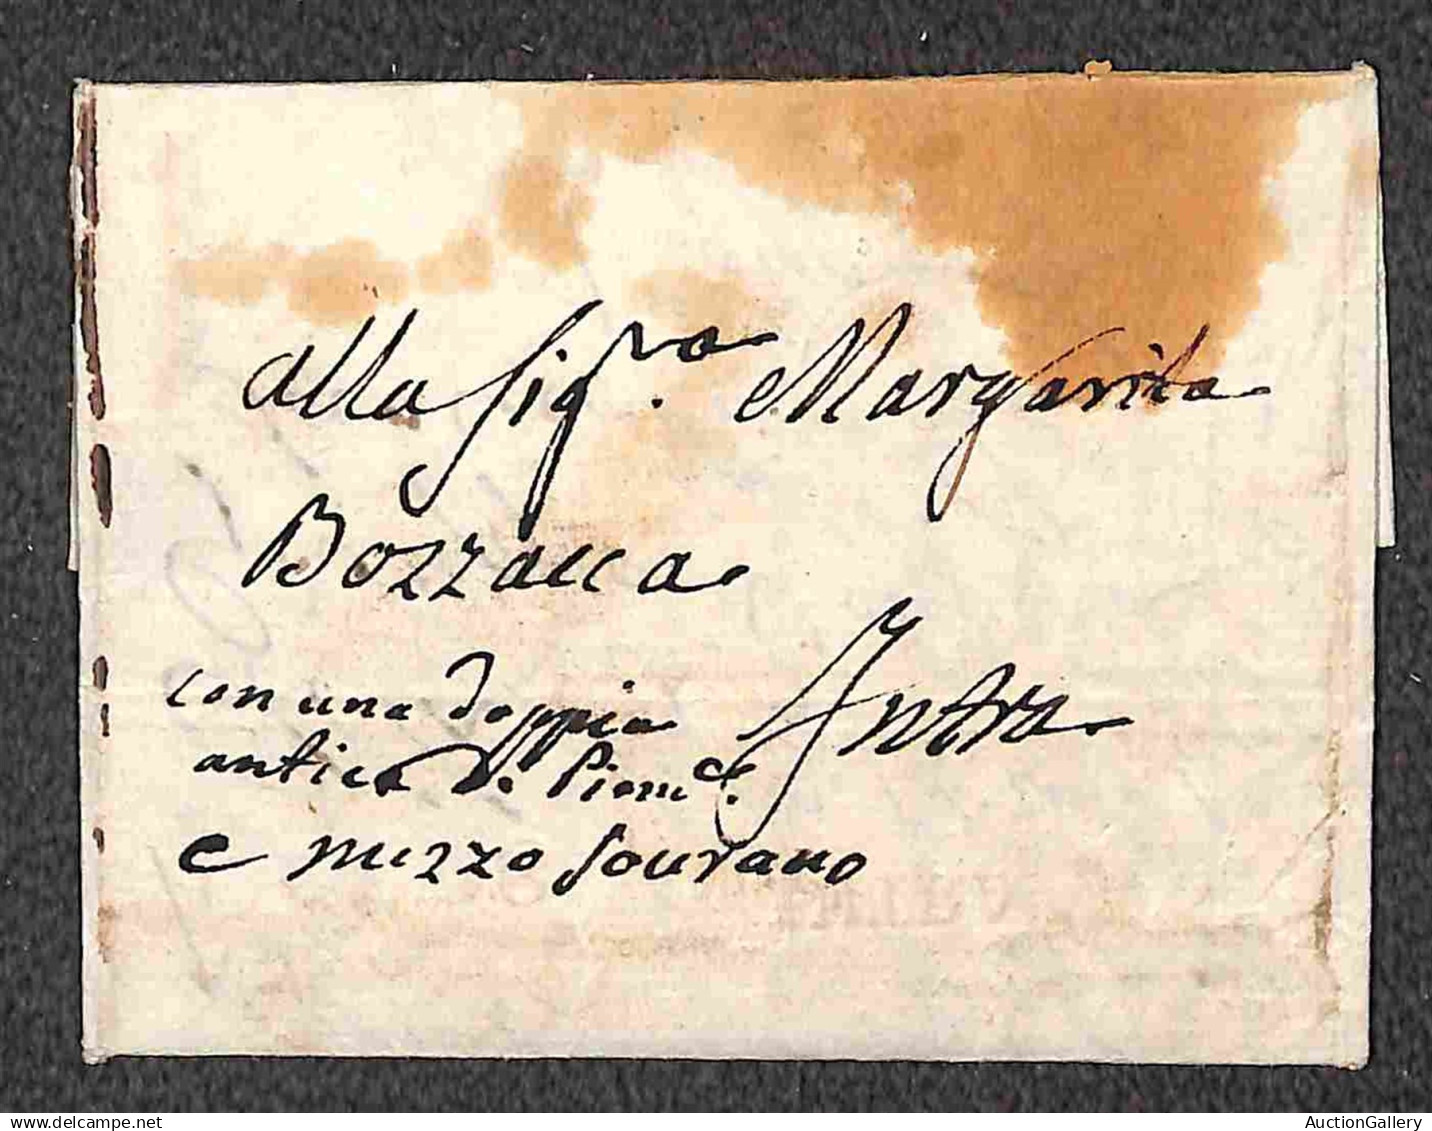 alla Sig.ra Margarita
Bozzacca
Intra
con una doppia
antica di Piem.te
e mezzo Sovrano
AuctionGallery